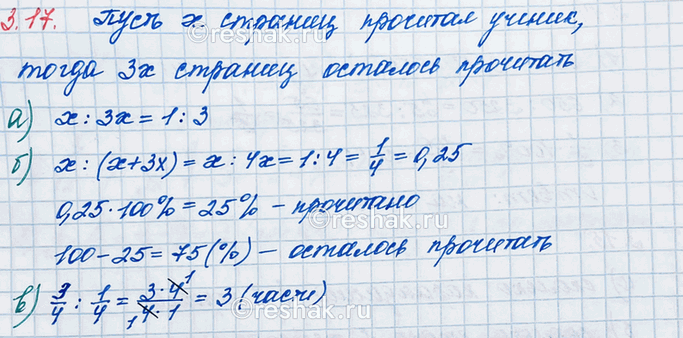 3.17. Пусть x страниц прочитал ученик,
тогда 3x страниц осталось прочитать
а) x : 3x = 1 : 3
б) x : (x+3x) = x : 4x = 1 : 4 = 1/4 = 0,25
0,25 · 100% = 25% – прочитано
100 – 25 = 75 (%) – осталось прочитать
в) 3/4 : 1/4 = 3·4 1/1 4·1 = 3 (части)
©reshak.ru
©reshak.ru